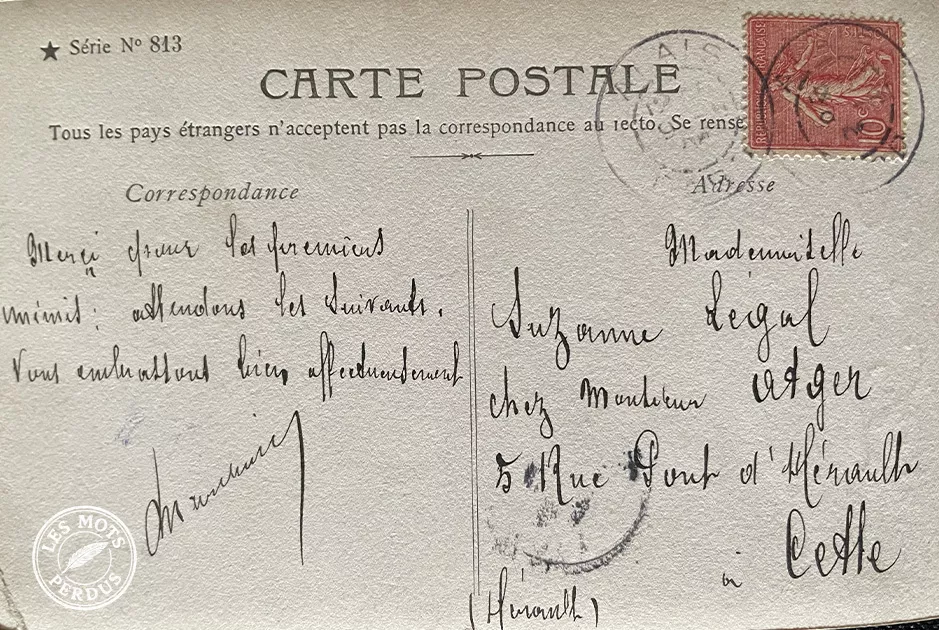 ★ Série Nº 813
CARTE POSTALE
Tous les pays étrangers n'acceptent pas la correspondance au recto. Se rense
Correspondance
Adresse
RÉPUBLIQUE FRANÇAISE
10c
Merci pour les premiers
minit: attendons les suivants.
Vous embrassons bien affectueusement
Mademoiselle
Suzanne Légal
chez Monsieur Atger
5 Rue Pont d'Hérault
à Cette
(Hérault)
LES MOTS PERDUS